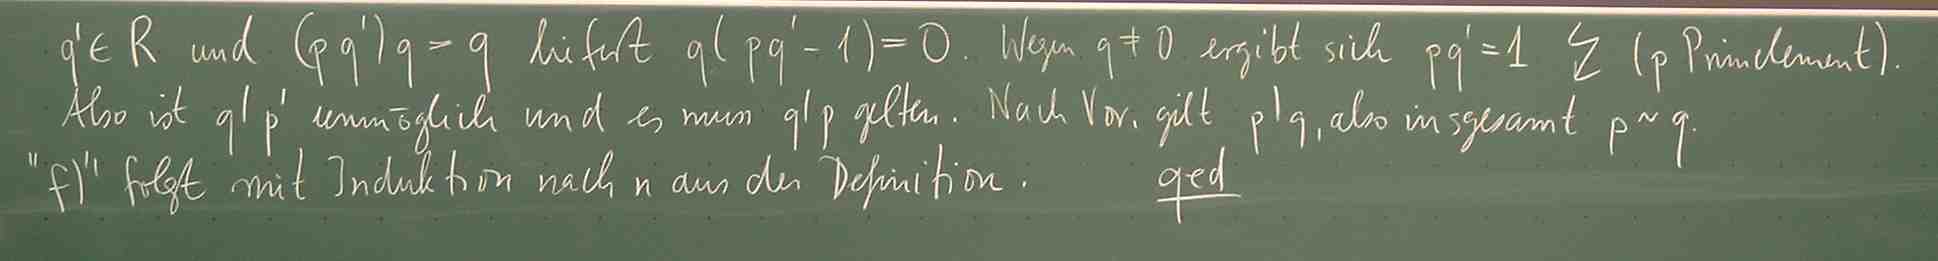 q'∈ R und (pq')q = q liefert q(pq'-1)=0. Wegen q≠0 ergibt sich pq'=1 ↯ (p Primelement).
Also ist q|p' unmöglich und es muss q|p gelten. Nach Vor. gilt p|q, also insgesamt p~q.
"f)" folgt mit Induktion nach n aus der Definition. qed